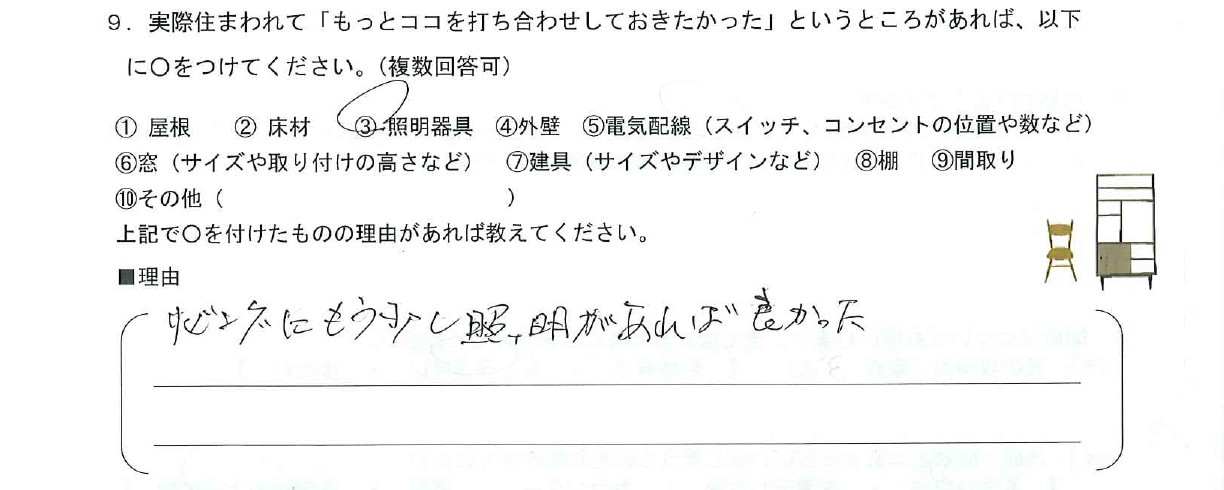 ９．実際住まわれて「もっとココを打ち合わせしておきたかった」というところがあれば、以下
に〇をつけてください。（複数回答可）
① 屋根　② 床材　③ 照明器具　④外壁　⑤電気配線（スイッチ、コンセントの位置や数など）
⑥窓（サイズや取り付けの高さなど）　⑦建具（サイズやデザインなど）　⑧棚　⑨間取り
⑩その他（　　　　　　　　　　　　　　）
上記で〇を付けたものの理由があれば教えてください。
■理由
リビングにもう少し照明があれば良かった